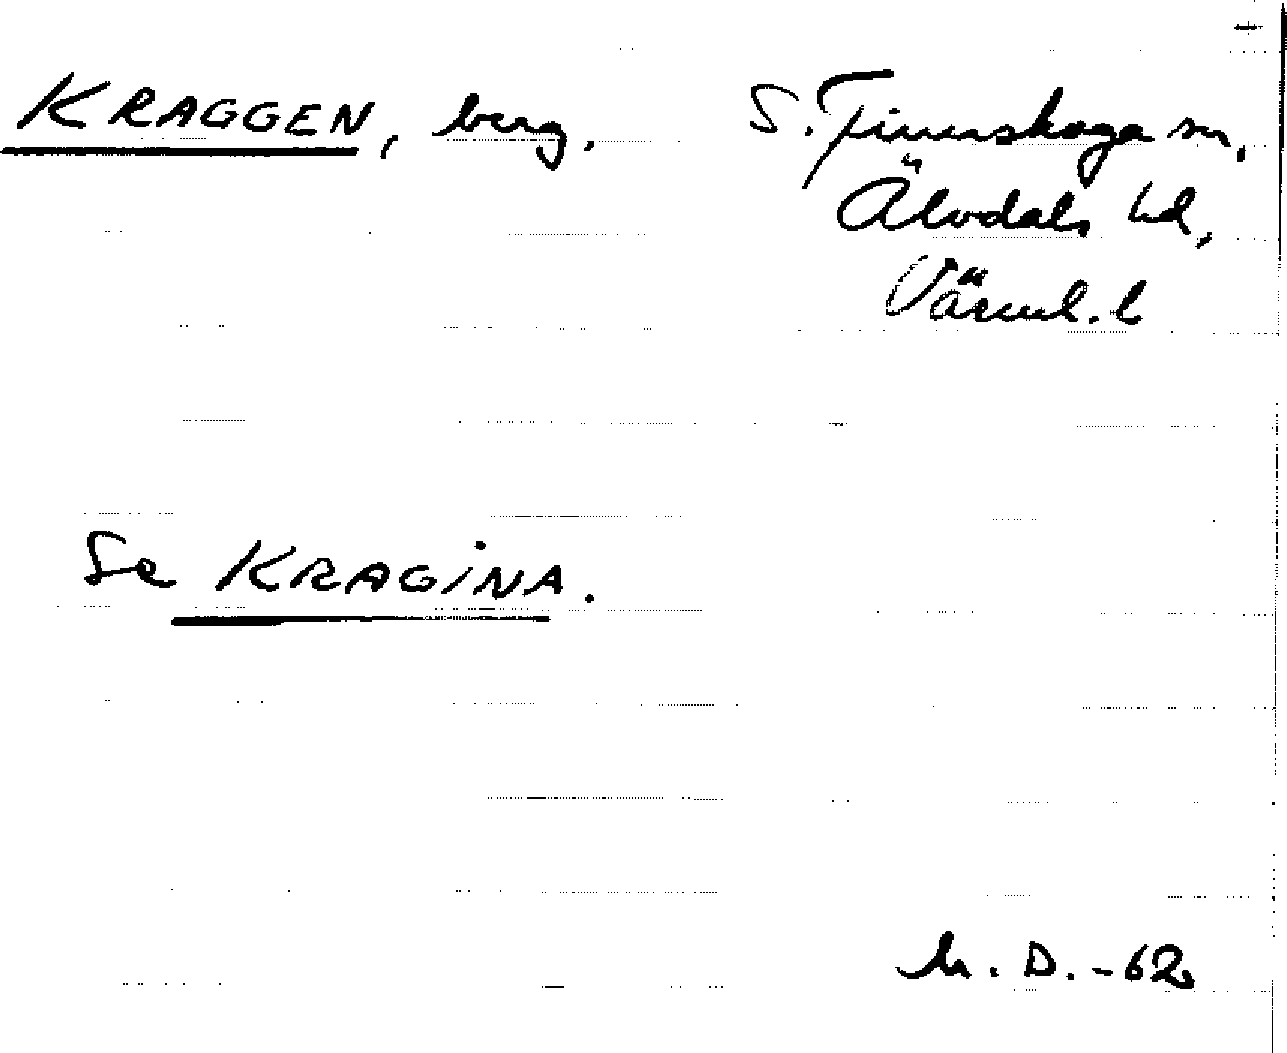 KRAGGEN, berg. S. Finnskoga sn,
Älvdals hd,
Värml. l
Se KRAGINA.
M. D. -62